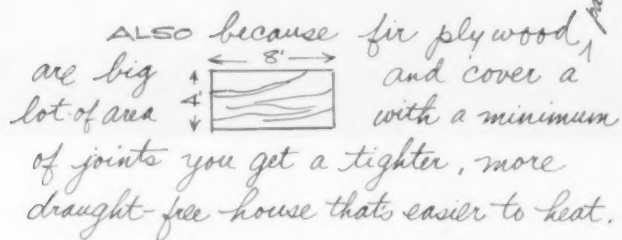 ALSO because fir plywood
are big 8' and cover a
lot of area 4' with a minimum
of joints you get a tighter, more
draught-free house that's easier to heat.